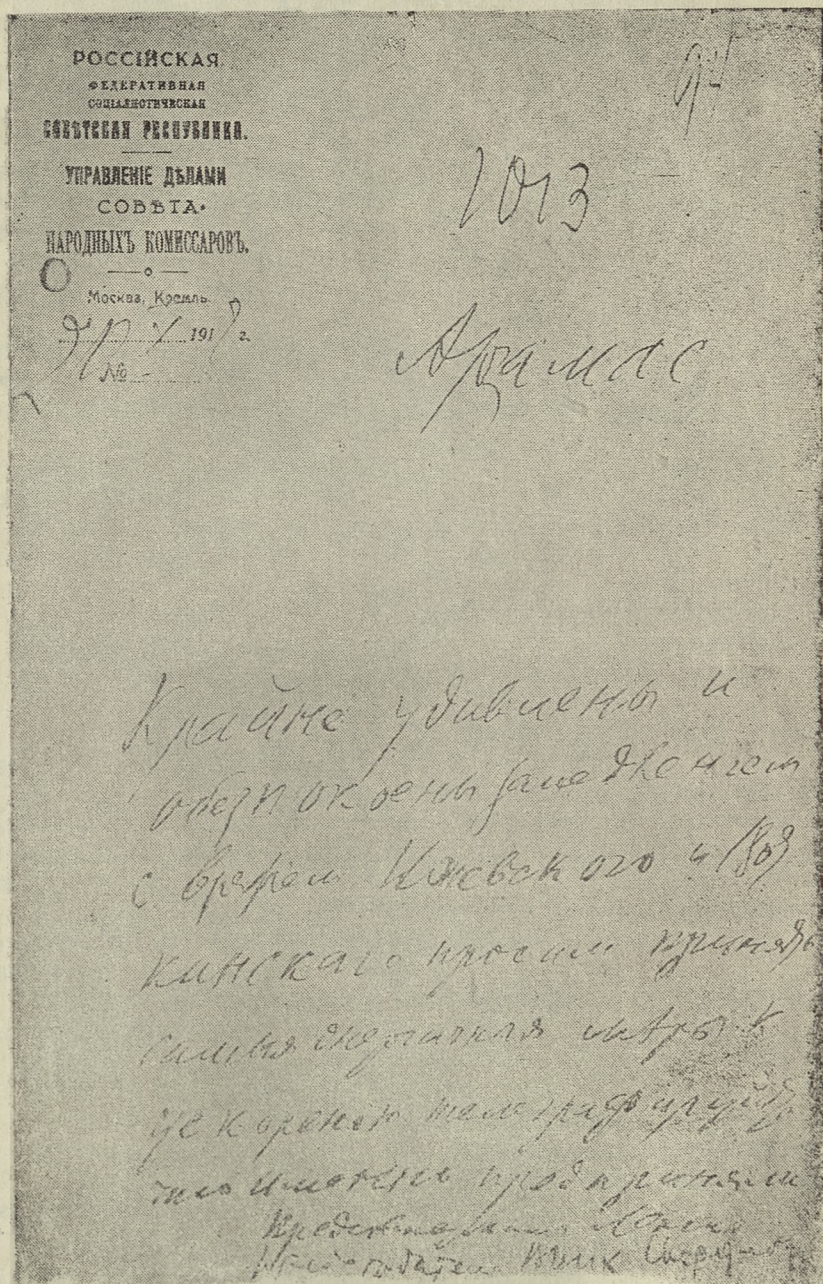 РОССІЙСКАЯ
ФЕДЕРАТИВНАЯ
СОЦІАЛИСТИЧЕСКАЯ
СОВѢТСКАЯ РЕСПУБЛИКА.
УПРАВЛЕНІЕ ДѢЛАМИ
СОВѢТА
НАРОДНЫХЪ КОМИССАРОВЪ.
Москва, Кремль.
1918 г.
№
94
1013
Арзамас
Крайне удивлены и
обезпокоены замедлением
с взятием Ижевского и Вот
кинскаго просим принять
самыя энергичныя мѣры к
ускорению телеграфируйте
что именно предприняли
Предсовнаркома Ленин
ВЦИК Свердлов